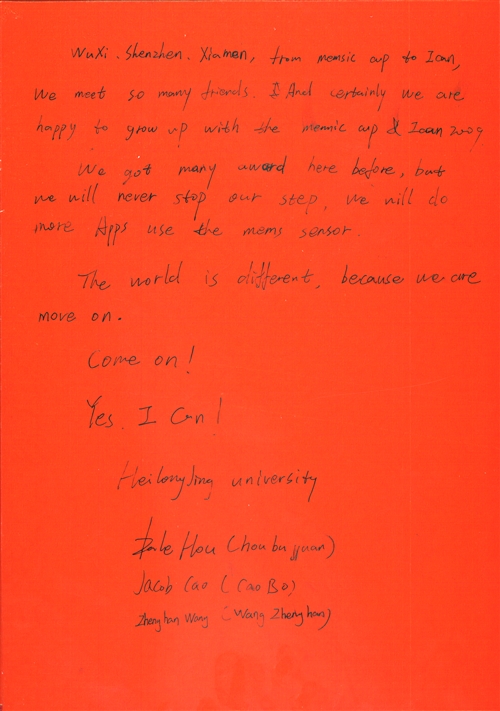 WuXi. Shenzhen. Xiamen, from memsic cup to Ican,
We meet so many friends. And certainly we are
happy to grow up with the memsic cup & Ican 2009
We got many award here before, but
we will never stop our step, we will do
more Apps use the mems sensor.
The world is different, because we are
move on.
Come on!
Yes. I Can!
Heilongjing university
Hou (
Jacob Cao (Cao Bo)
Zhenghan Wang (Wang Zhenghan)